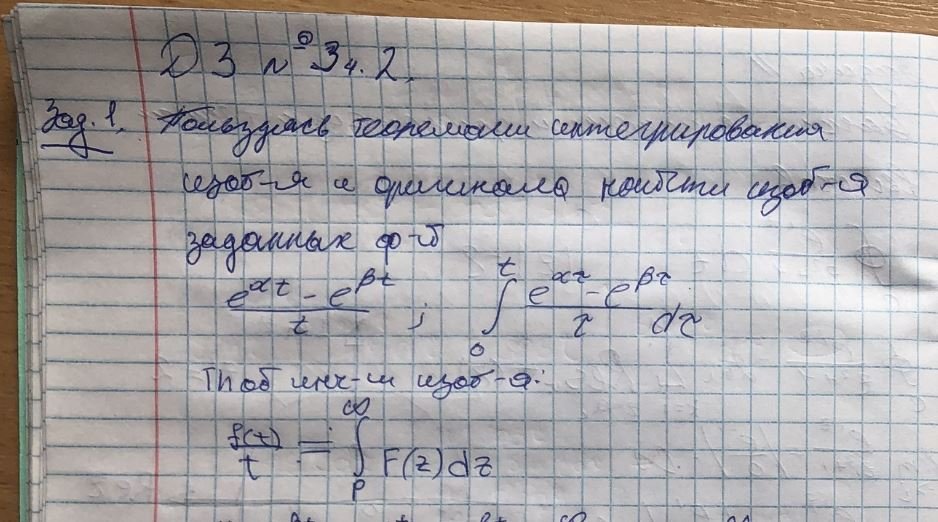 ДЗ №3 ч. 2.
Зад. 1. Пользуясь теоремами интегрирования
изоб-я и оригинала найти изоб-я
заданных ф-й
(e^{αt} - e^{βt})/t ; ∫_0^t (e^{ατ} - e^{βτ})/τ dτ
Т об инт-и изоб-я:
f(t)/t ≓ ∫_p^∞ F(z)dz